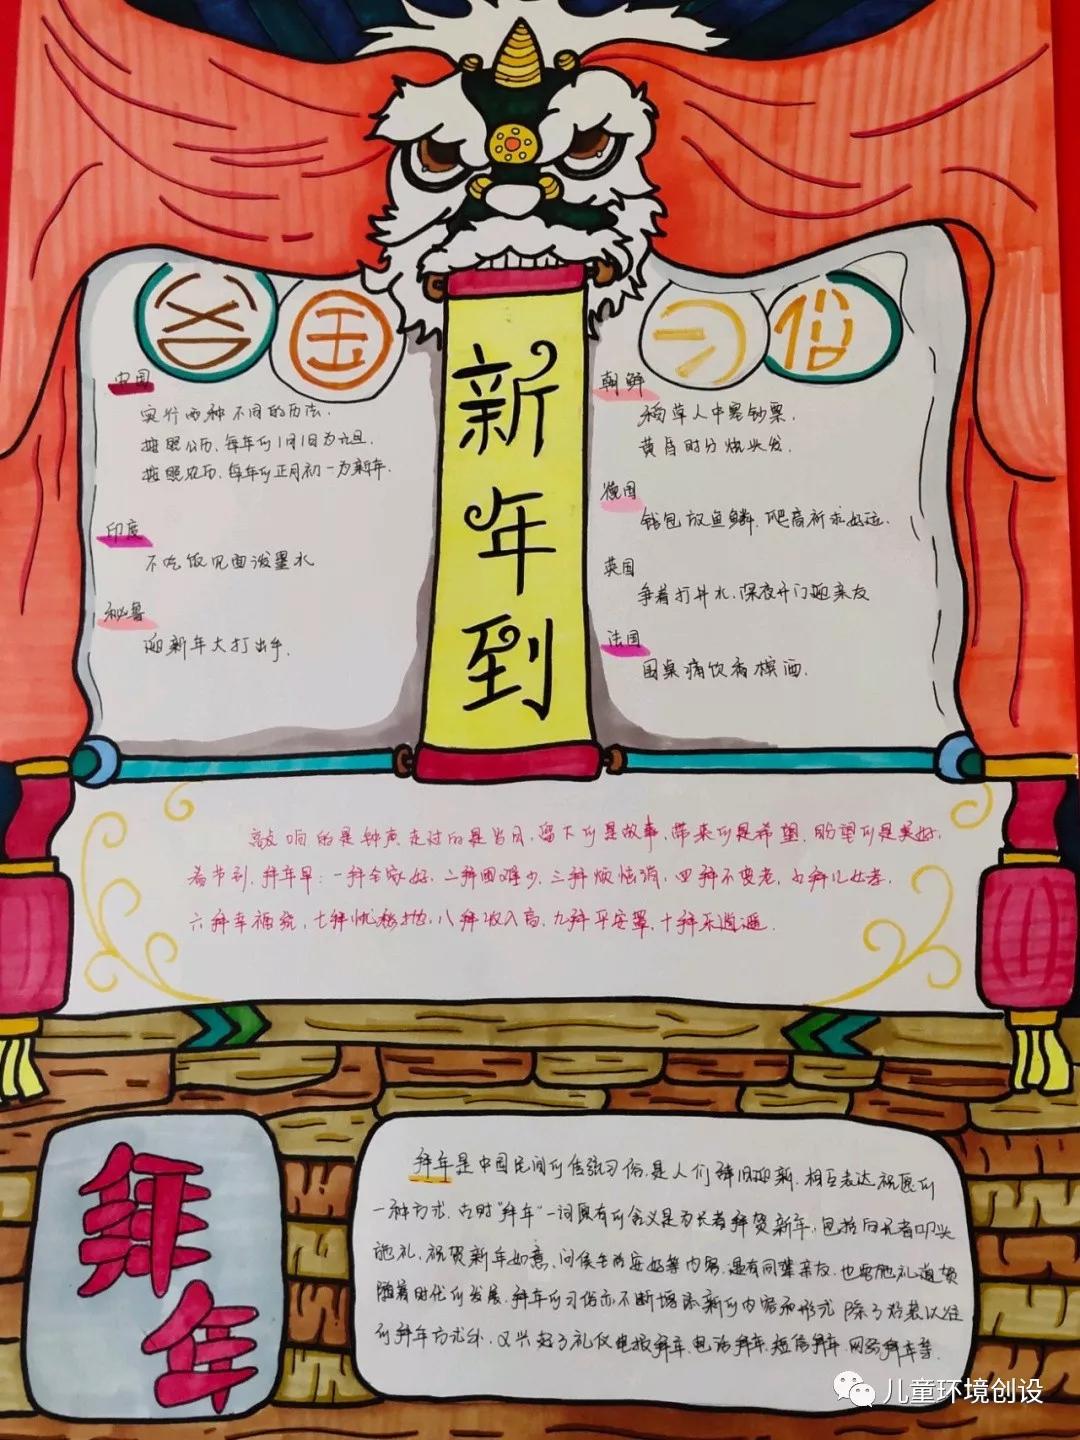 各国
习俗
新年到
中国
实行两种不同的历法.
按照公历,每年的1月1日为元旦.
按照农历,每年的正月初一为新年.
印度
不吃饭见面泼墨水
秘鲁
迎新年大打出手.
朝鲜
稻草人中塞钞票.
黄昏时分烧头发.
德国
钱包放鱼鳞.爬高祈求好运.
英国
争着打井水.深夜开门迎亲友
法国
围桌痛饮香槟酒.
敲响的是钟声,走过的是岁月,留下的是故事,带来的是希望,盼望的是美好,
春节到,拜年早:一拜全家好,二拜困难少,三拜烦恼消,四拜不变老,五拜儿女孝,
六拜幸福绕,七拜忧愁抛,八拜收入高,九拜平安罩,十拜乐逍遥.
拜年
拜年是中国民间的传统习俗.是人们辞旧迎新.相互表达祝愿的
一种方式.古时"拜年"一词原有的含义是为长者拜贺新年,包括向长者叩头
施礼、祝贺新年如意、问候生活安好等内容.遇有同辈亲友,也要施礼道贺
随着时代的发展.拜年的习俗亦不断增添新的内容和形式 除了沿袭以往
的拜年方式外、又兴起了礼仪电报拜年、电话拜年、短信拜年、网络拜年等.
儿童环境创设